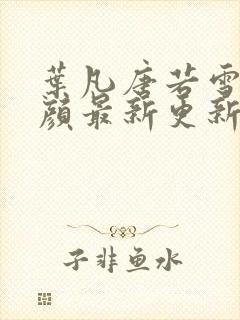 葉凡唐若雪
顔最新更新
子非鱼水